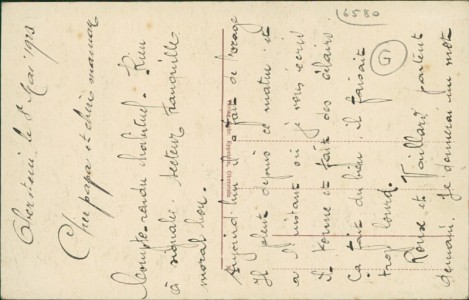 le 8 Mai 1923
Cher papa et chère maman
Compte-rendu habituel. Rien
à signaler. Secteur tranquille
moral bon.
Aujourd'hui il a fait de l'orage
Il pleut depuis ce matin et
à l'instant où je vous écris
il tonne et fait des éclairs.
Ça fait du bien, il faisait
trop lourd.
Roux et Vaillard partent
demain. Je donnerai un mot
6580
G1